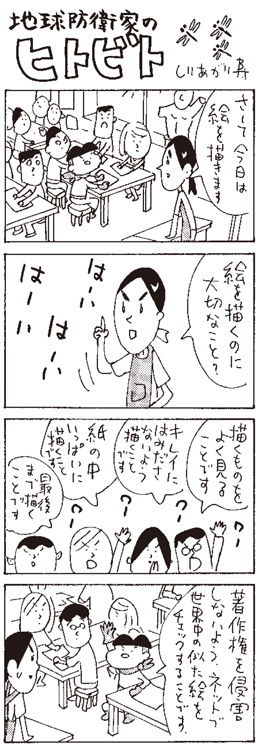 地球防衛家の
ヒトビト
しりあがり寿
さーて今日は
絵を描きます
絵を描くのに
大切なこと？
はーい
はーい
はーい
描くものを
よく見る
ことです
？
キレイに
はみださ
ないよう
描くこと
？
紙の中
いっぱいに
描くこと
？
最後
まで描く
ことです
？
著作権を侵害
しないよう、ネットで
世界中の似た絵を
チェックすることです。